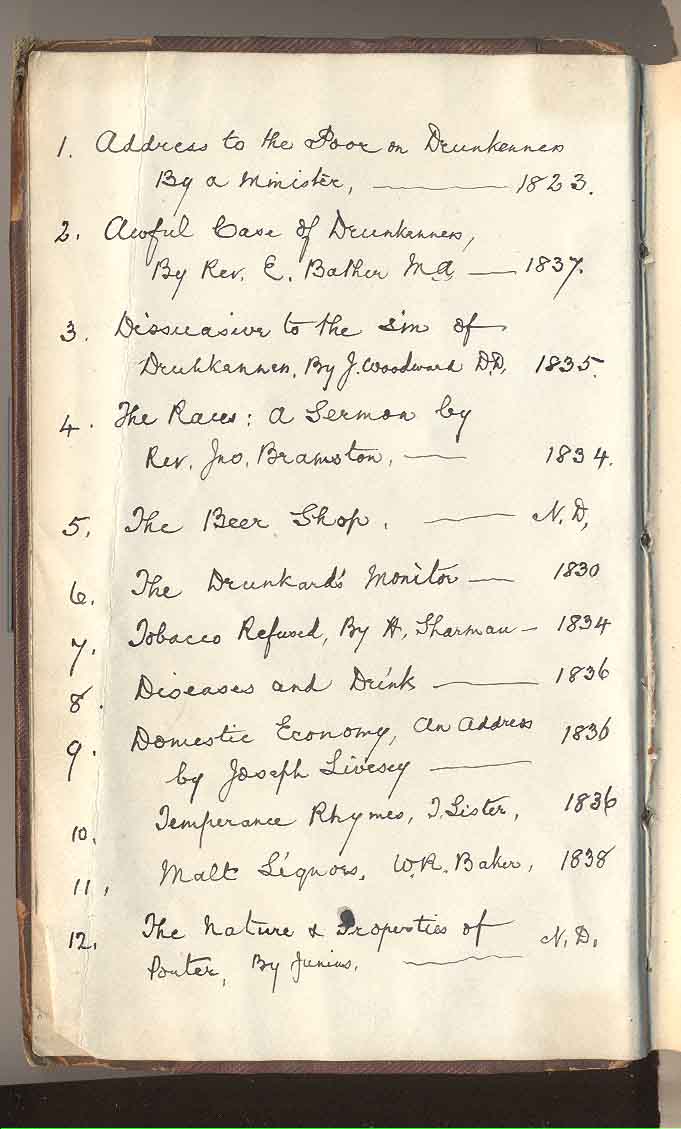 1. Address to the Poor on Drunkenness
By a Minister, 1823.
2. Awful Case of Drunkenness,
By Rev. E. Bather M.A. 1837.
3. Dissuasive to the sin of
Drunkenness, By J. Woodward D.D. 1835.
4. The Races: A Sermon by
Rev. Jno. Bramston, 1834.
5. The Beer Shop. N.D.
6. The Drunkard's Monitor 1830
7. Tobacco Refused, By A. Sharman 1834
8. Diseases and Drink 1836
9. Domestic Economy, An Address 1836
by Joseph Livesey
10. Temperance Rhymes, T. Lister, 1836
11, Malt Liquors, W.R. Baker, 1838
12. The Nature & Properties of N.D.
Porter, By Junius.